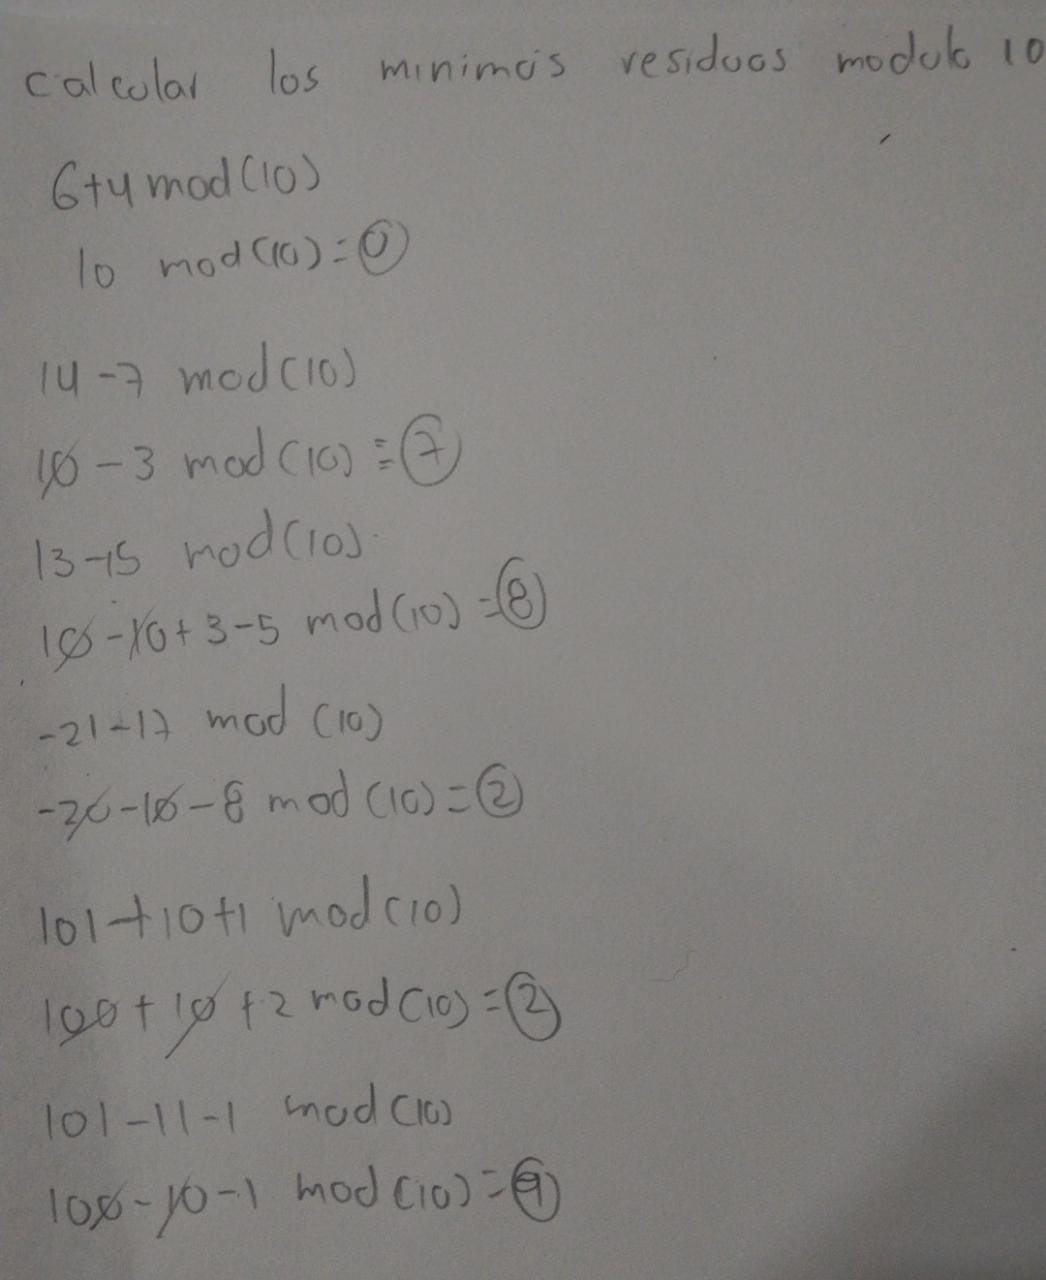 calcular los minimos residuos modulo 10
6+4 mod(10)
10 mod(10)=0
14-7 mod(10)
10-3 mod(10)≡7
13-15 mod(10)
10-10+3-5 mod(10)=8
-21-17 mod (10)
-20-10-8 mod(10)=2
101+10+1 mod(10)
100+10+2 mod(10)=2
101-11-1 mod(10)
100-10-1 mod(10)=9